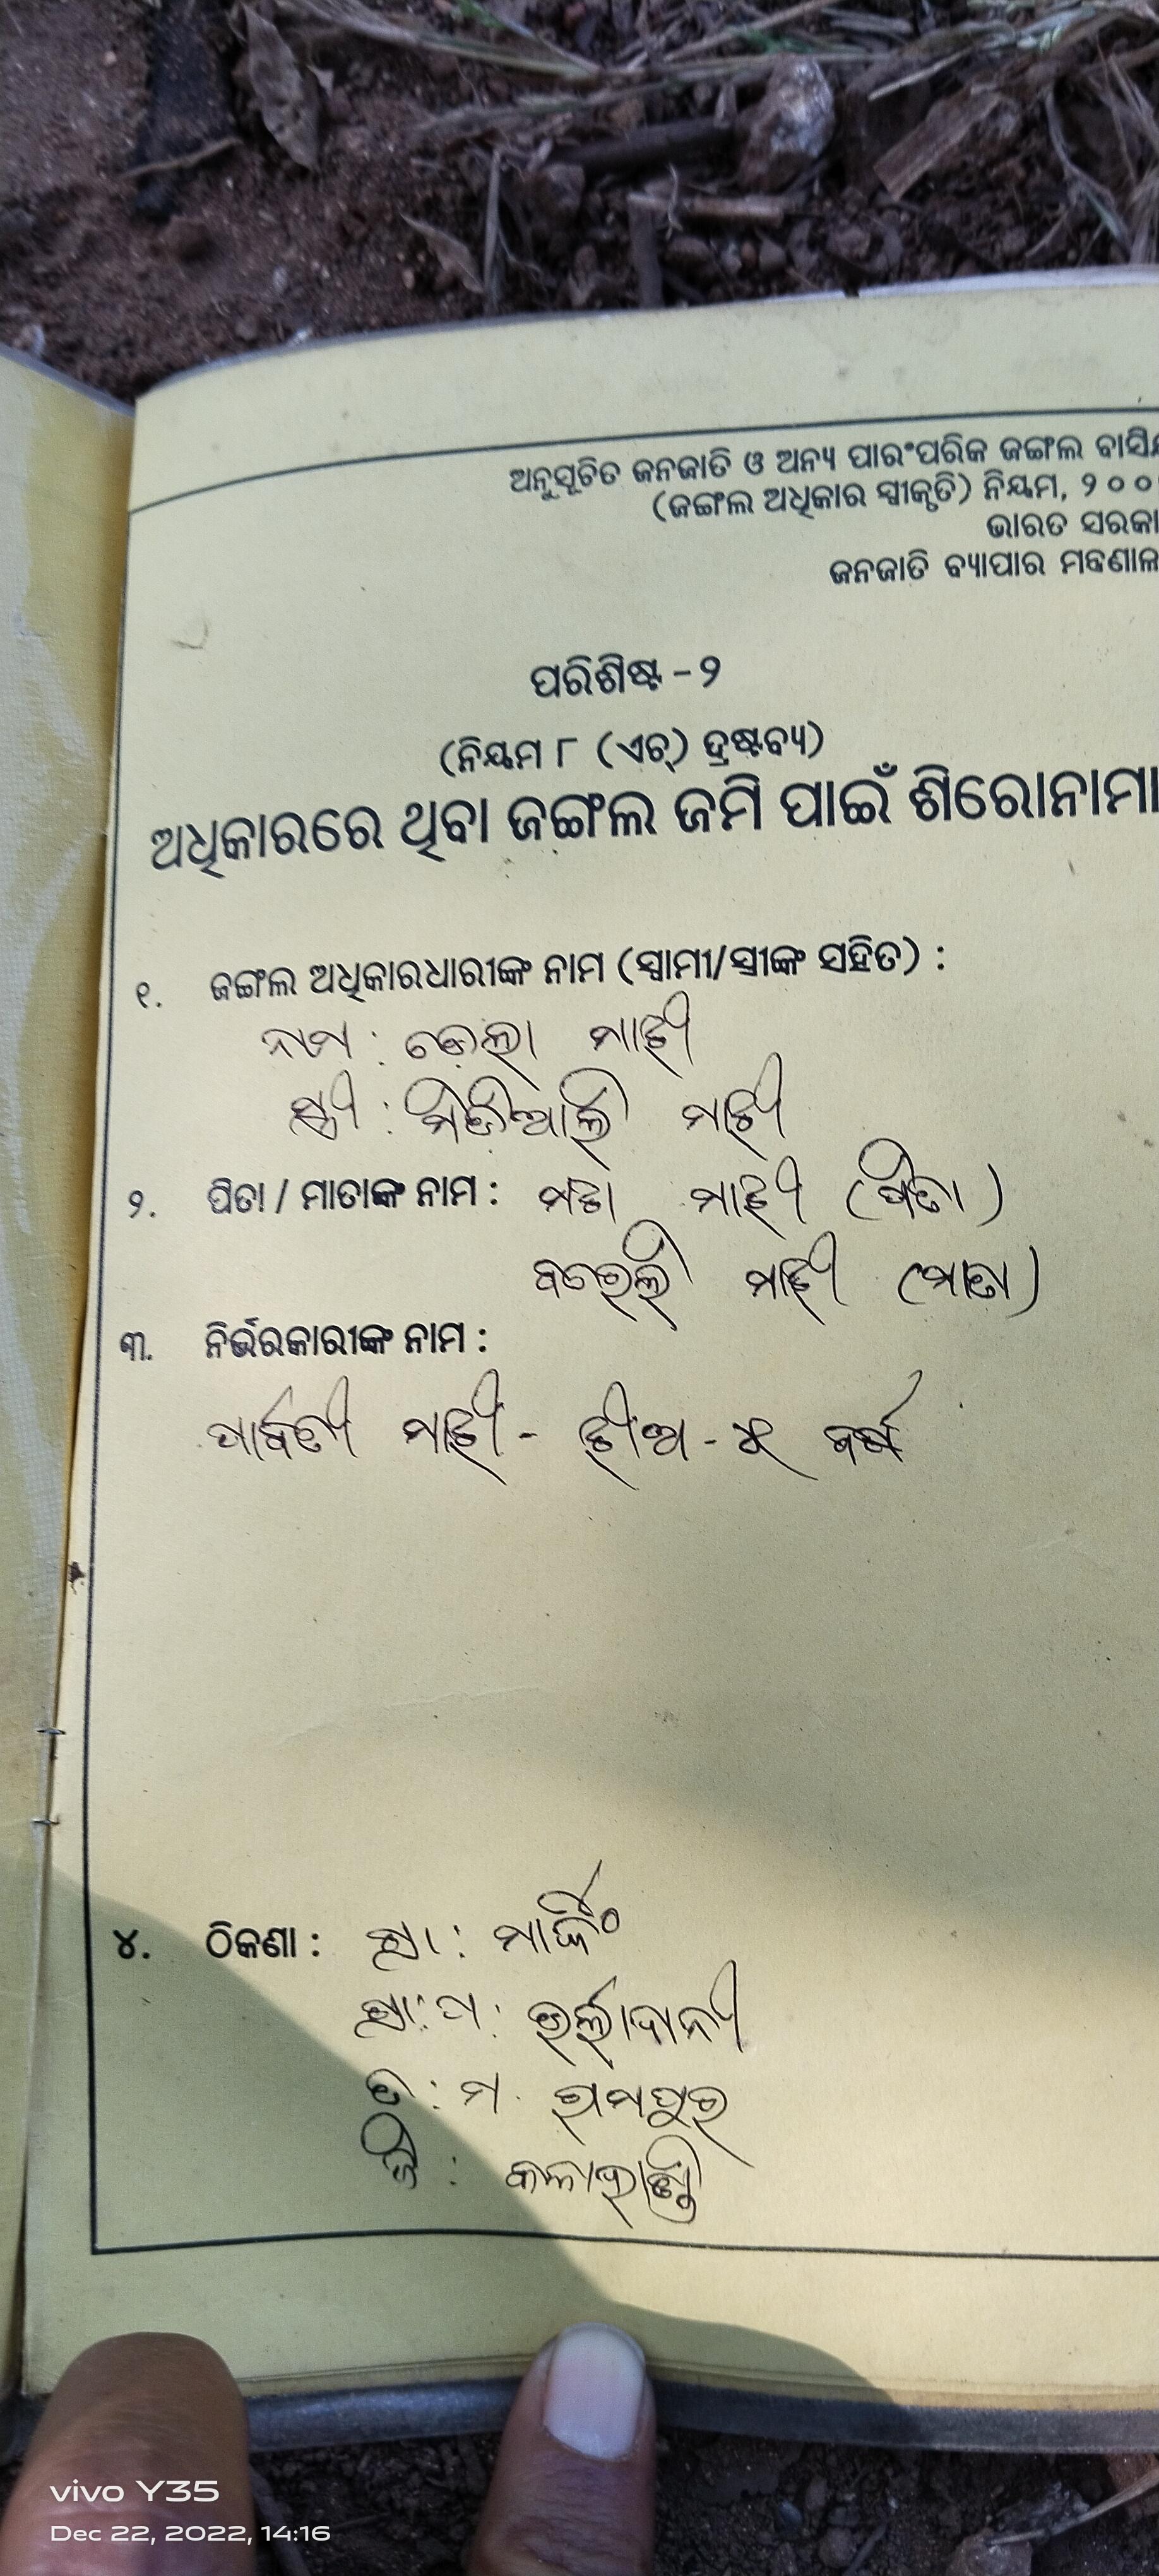 ଅନୁସୂଚିତ ଜନଜାତି ଓ ଅନ୍ୟ ପାରଂପରିକ ଜଙ୍ଗଲ
(ଜଙ୍ଗଲ ଅଧିକାର ସ୍ୱୀକୃତି) ନିୟମ, ୨୦୦
ଭାରତ ସରକା
ଜନଜାତି ବ୍ୟାପାର
ପରିଶିଷ୍ଟ - ୨
(ନିୟମ ୮ (ଏଚ୍) ଦ୍ରଷ୍ଟବ୍ୟ)
ଅଧିକାରରେ ଥିବା ଜଙ୍ଗଲ ଜମି ପାଇଁ ଶିରୋନାମା
୧. ଜଙ୍ଗଲ ଅଧିକାରଧାରୀଙ୍କ ନାମ (ସ୍ୱାମୀ/ସ୍ତ୍ରୀଙ୍କ ସହିତ) :
ନାମ : ମାଝୀ
ସ୍ତ୍ରୀ : ମାଝୀ
୨. ପିତା / ମାତାଙ୍କ ନାମ : ମାଝୀ (ପିତା)
ମାଝୀ (ମାତା)
୩. ନିର୍ଭରକାରୀଙ୍କ ନାମ :
ପାର୍ବତୀ ମାଝୀ - ଝୀଅ - ୪ ବର୍ଷ
୪. ଠିକଣା : ଗ୍ରା :
ଗ୍ରା: ପ: ଉର୍ଲାଦାନୀ
ମ. ରାମପୁର
ଜି : କଳାହାଣ୍ଡି
vivo Y35
Dec 22, 2022, 14:16